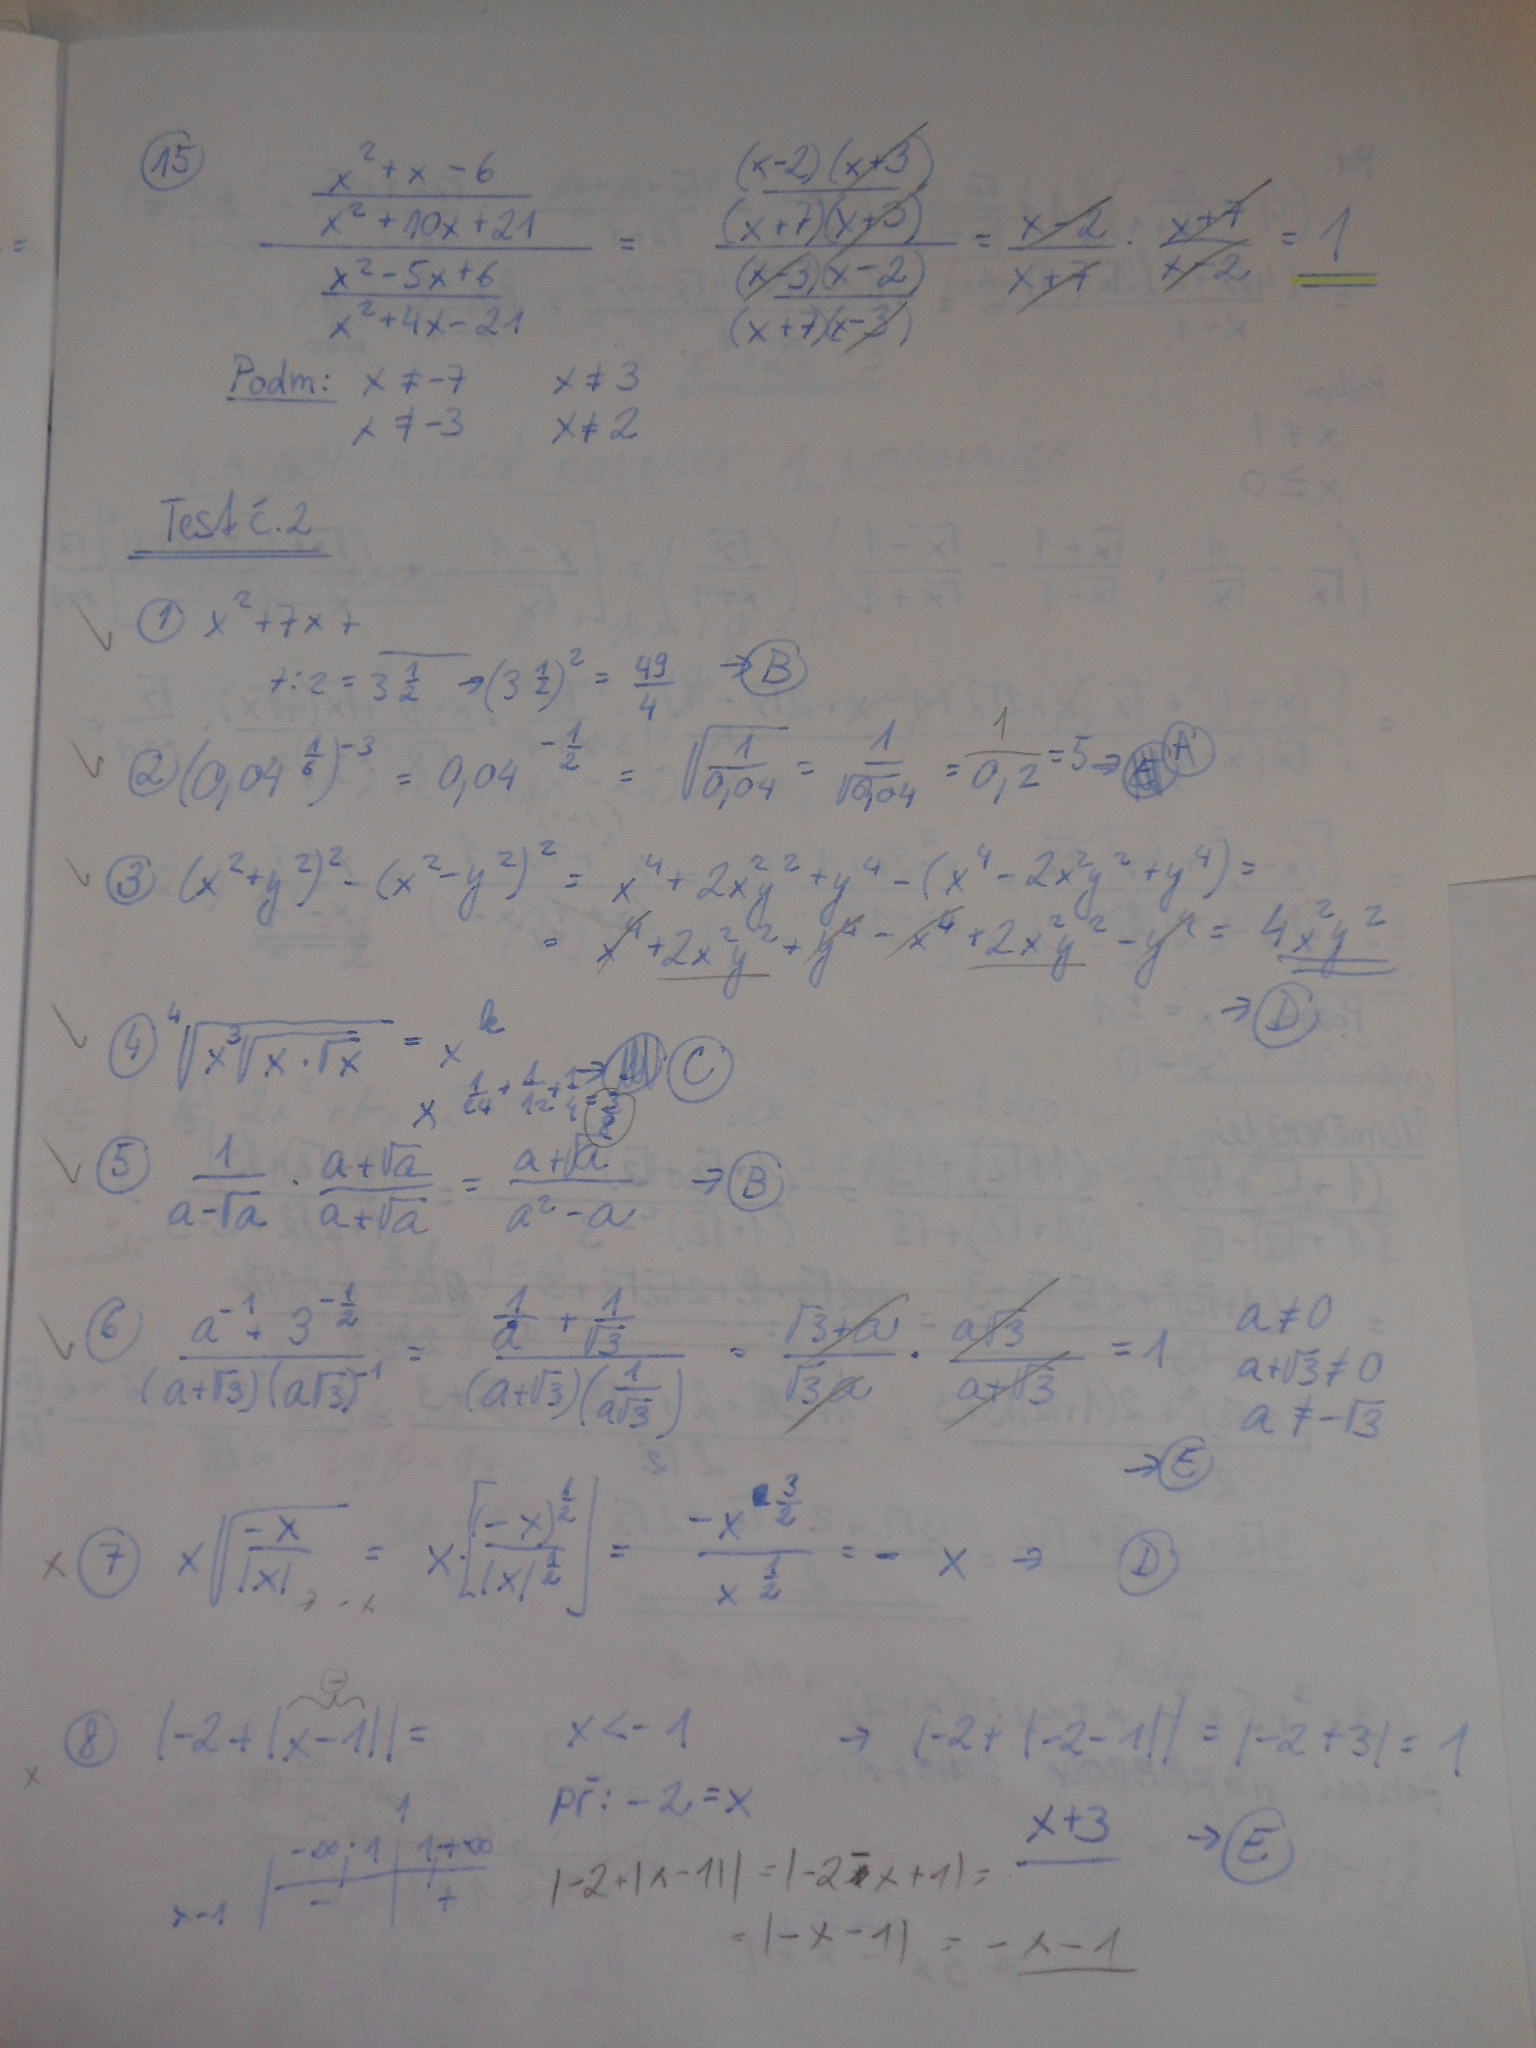 15 (x²+x-6)/(x²+10x+21) / (x²-5x+6)/(x²+4x-21) = ((x-2)(x+3))/((x+7)(x+3)) / ((x-3)(x-2))/((x+7)(x-3)) = (x-2)/(x+7) · (x+7)/(x-2) = 1
Podm: x≠-7 x≠3
x≠-3 x≠2
Test č.2
1 x²+7x+
7:2=3 1/2 → (3 1/2)² = 49/4 → B
2 (0,04^(1/6))^(-3) = 0,04^(-1/2) = √(1/0,04) = 1/√0,04 = 1/0,2 = 5 → A
3 (x²+y²)²-(x²-y²)² = x⁴+2x²y²+y⁴-(x⁴-2x²y²+y⁴)=
= x⁴+2x²y²+y⁴-x⁴+2x²y²-y⁴ = 4x²y²
→ D
4 ⁴√(x ³√(x·√x)) = x^k
x^(1/24+1/12+1/4=3/8) → C
5 1/(a-√a) · (a+√a)/(a+√a) = (a+√a)/(a²-a) → B
6 (a⁻¹+3^(-1/2))/((a+√3)(a√3)⁻¹) = (1/a + 1/√3)/((a+√3)(1/(a√3))) = (√3+a)/(√3a) · (a√3)/(a+√3) = 1 a≠0
a+√3≠0
a≠-√3
→ E
x 7 x√(-x/|x|) = x·[(-x)^(1/2)/|x|^(1/2)] = -x^(3/2)/x^(1/2) = - x → D
→ -x
8 |-2+|x-1||= x<-1 → |-2+|-2-1|| = |-2+3| = 1
x
př: -2=x
x+3 → E
1
-∞;1 1;+∞
x-1 - +
|-2+|x-1|| = |-2-x+1| =
= |-x-1| = -x-1